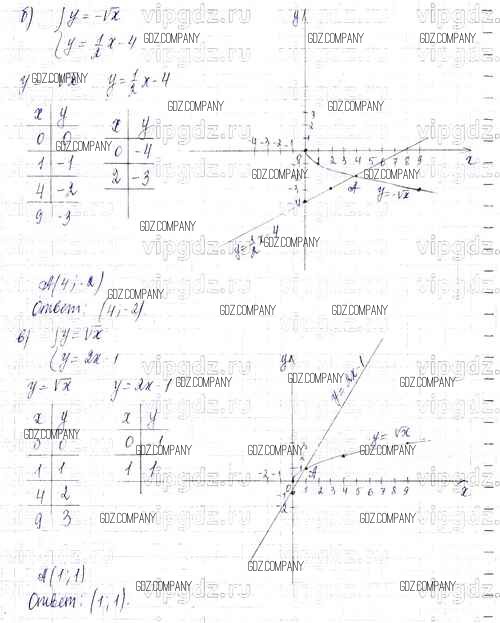 б) { y = -√x
y = 1/2 x - 4
y = -√x   y = 1/2 x - 4
x | y
0 | 0
1 | -1
4 | -2
9 | -3
x | y
0 | -4
2 | -3
y
3
2
1
-4 -3 -2 -1 0 1 2 3 4 5 6 7 8 9 x
-3
-4
A
y = -√x
y = 1/2 x - 4
A(4; -2)
Ответ: (4; -2)
в) { y = √x
y = 2x - 1
y = √x   y = 2x - 1
x | y
0 | 0
1 | 1
4 | 2
9 | 3
x | y
0 | -1
1 | 1
y
y = 2x - 1
y = √x
A
-2 -1 0 1 2 3 4 5 6 7 8 9 x
-1
-2
A(1; 1)
Ответ: (1; 1).
GDZ.COMPANY
vipgdz.ru